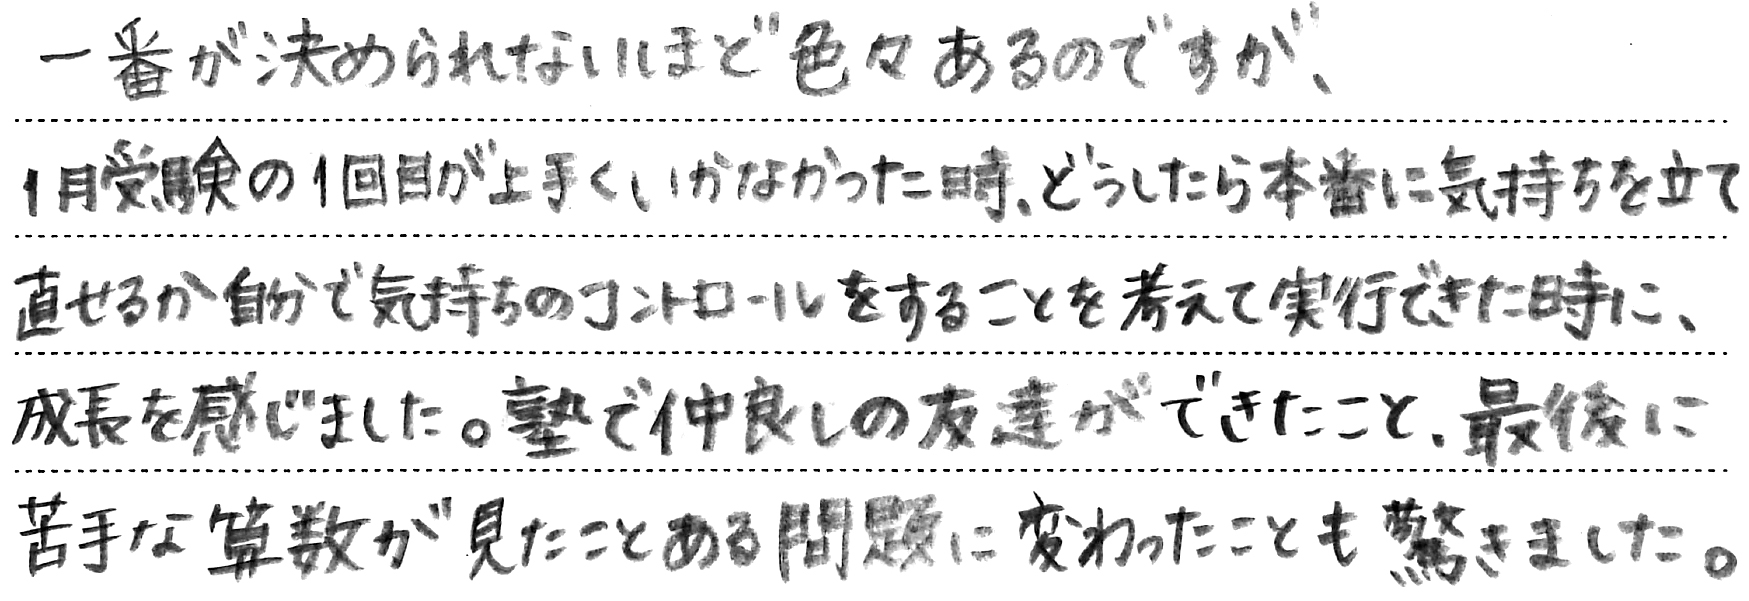 一番が決められないほど色々あるのですが、
1月受験の1回目が上手くいかなかった時、どうしたら本番に気持ちを立て
直せるか自分で気持ちのコントロールをすることを考えて実行できた時に、
成長を感じました。塾で仲良しの友達ができたこと、最後に
苦手な算数が見たことある問題に変わったことも驚きました。